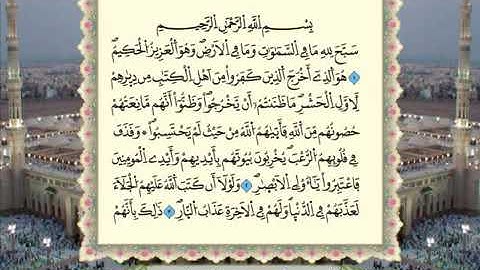 بِسْمِ اللَّهِ الرَّحْمَٰنِ الرَّحِيمِ
سَبَّحَ لِلَّهِ مَا فِي السَّمَٰوَٰتِ وَمَا فِي الْأَرْضِ وَهُوَ الْعَزِيزُ الْحَكِيمُ
١ هُوَ الَّذِي أَخْرَجَ الَّذِينَ كَفَرُوا مِنْ أَهْلِ الْكِتَٰبِ مِن دِيَٰرِهِمْ
لِأَوَّلِ الْحَشْرِ مَا ظَنَنتُمْ أَن يَخْرُجُوا وَظَنُّوا أَنَّهُم مَّانِعَتُهُمْ
حُصُونُهُم مِّنَ اللَّهِ فَأَتَىٰهُمُ اللَّهُ مِنْ حَيْثُ لَمْ يَحْتَسِبُوا وَقَذَفَ
فِي قُلُوبِهِمُ الرُّعْبَ يُخْرِبُونَ بُيُوتَهُم بِأَيْدِيهِمْ وَأَيْدِي الْمُؤْمِنِينَ
فَاعْتَبِرُوا يَٰأُولِي الْأَبْصَٰرِ ٢ وَلَوْلَا أَن كَتَبَ اللَّهُ عَلَيْهِمُ الْجَلَاءَ
لَعَذَّبَهُمْ فِي الدُّنْيَا وَلَهُمْ فِي الْآخِرَةِ عَذَابُ النَّارِ ٣ ذَٰلِكَ بِأَنَّهُمْ